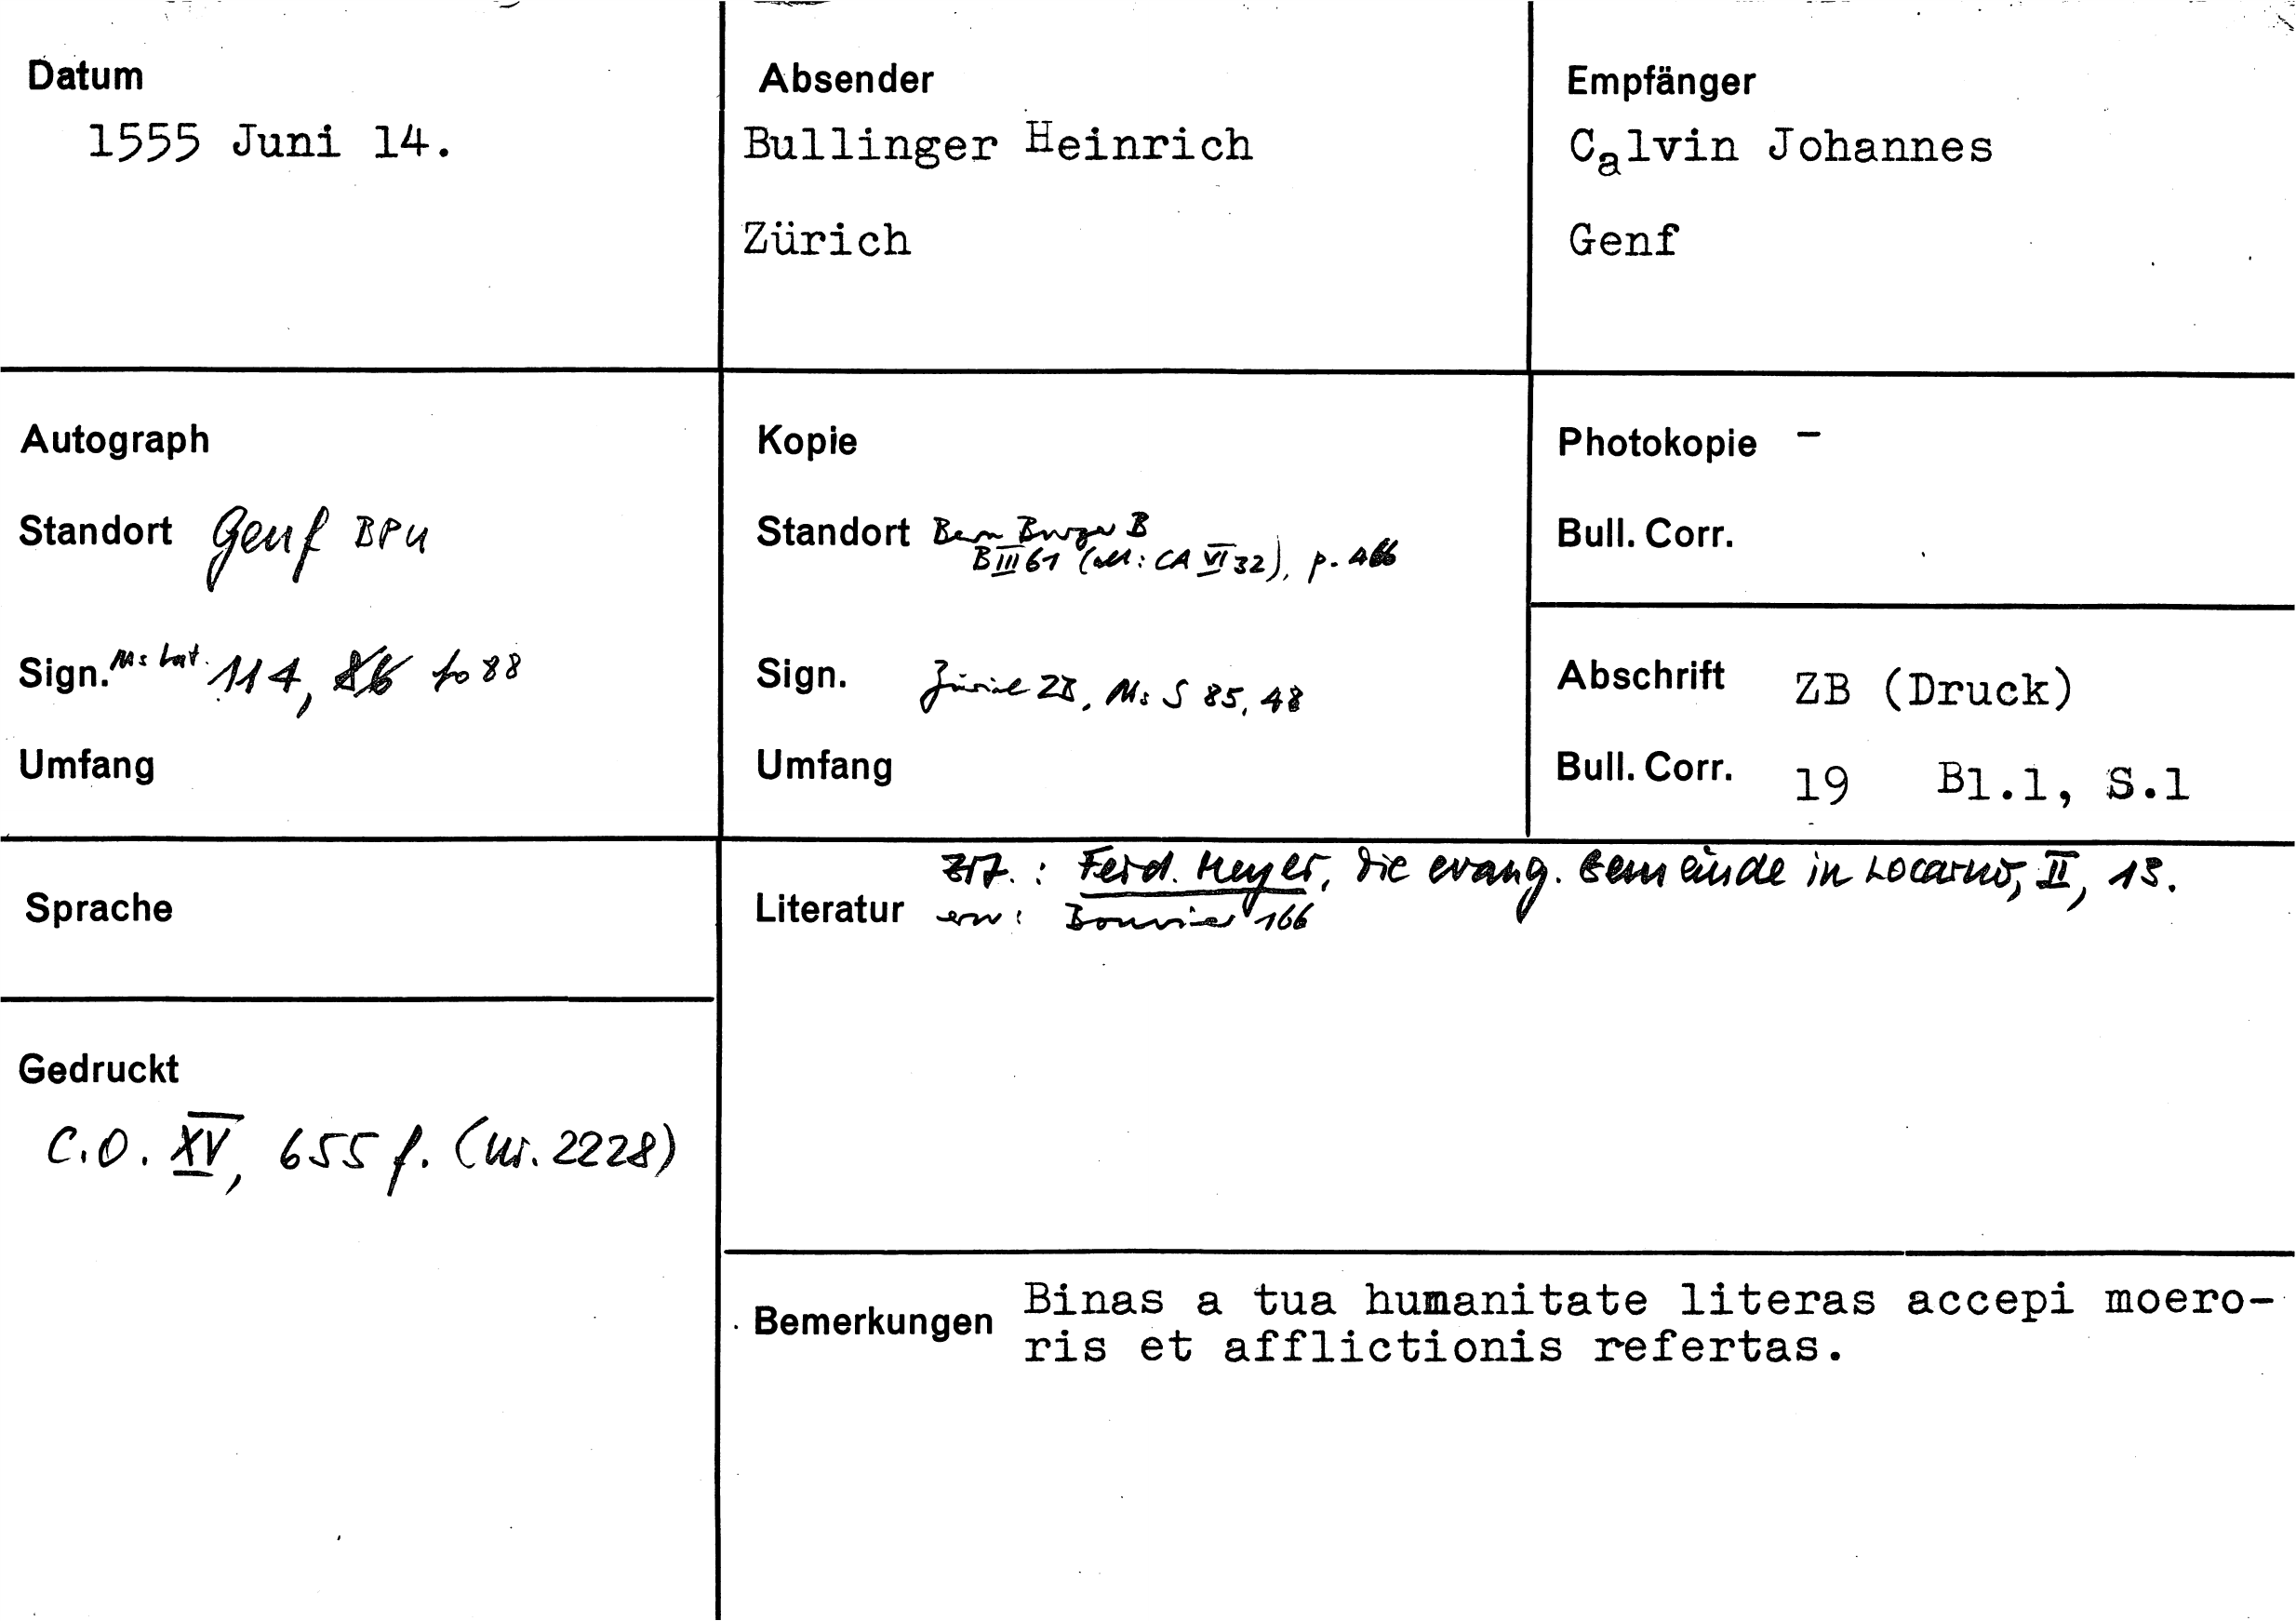 Datum
1555 Juni 14.
Absender
Bullinger Heinrich
Zürich
Empfänger
Calvin Johannes
Genf
Autograph
Standort Genf BPU
Sign. Ms lat. 114, fo 88
Umfang
Kopie
Standort Bern Burger B
B III 61 (alt: CA VI 32), p.
Sign. Zürich ZB, Ms S 85, 48
Umfang
Photokopie –
Bull. Corr.
Abschrift ZB (Druck)
Bull. Corr. 19 Bl.1, S.1
Sprache
Gedruckt
C.O. XV, 655 f. (Nr. 2228)
Zit.: Ferd. Meyer, Die evang. Gemeinde in Locarno, II, 13.
Literatur erw: Bouvier 166
Bemerkungen Binas a tua humanitate literas accepi moero-
ris et afflictionis refertas.